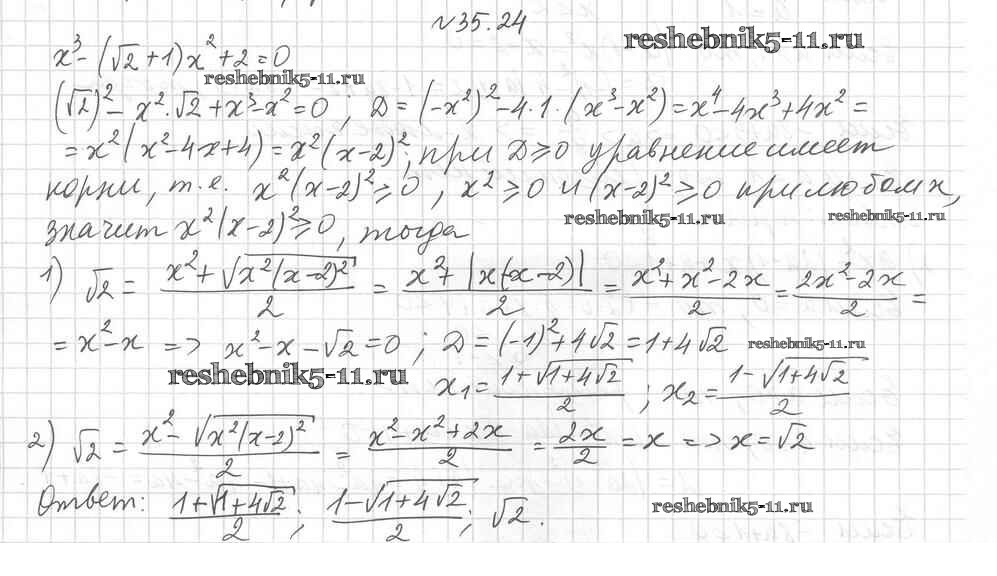 №35.24
x³-(√2+1)x²+2=0
reshebnik5-11.ru
reshebnik5-11.ru
(√2)²-x²·√2+x³-x²=0; D=(-x²)²-4·1·(x³-x²)=x⁴-4x³+4x²=
=x²(x²-4x+4)=x²(x-2)²; при D≥0 уравнение имеет
корни, т.е. x²(x-2)²≥0, x²≥0 и (x-2)²≥0 при любом x,
reshebnik5-11.ru
reshebnik5-11.ru
значит x²(x-2)²≥0, тогда
1) √2 = (x²+√(x²(x-2)²))/2 = (x²+|x(x-2)|)/2 = (x²+x²-2x)/2 = (2x²-2x)/2 =
=x²-x => x²-x-√2=0; D=(-1)²+4√2=1+4√2
reshebnik5-11.ru
reshebnik5-11.ru
x₁=(1+√(1+4√2))/2; x₂=(1-√(1+4√2))/2
2) √2 = (x²-√(x²(x-2)²))/2 = (x²-x²+2x)/2 = 2x/2 = x => x=√2
Ответ: (1+√(1+4√2))/2; (1-√(1+4√2))/2; √2.
reshebnik5-11.ru